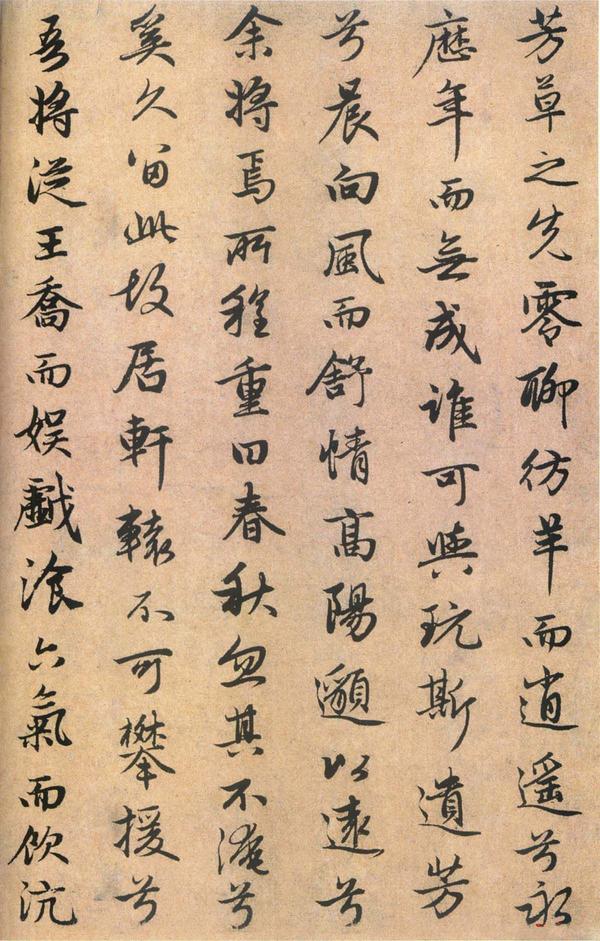 芳草之先零聊彷羊而逍遥兮永
歷年而無成誰可與玩斯遺芳
兮晨向風而舒情高陽邈以遠兮
余將焉所程重曰春秋忽其不淹兮
奚久留此故居軒轅不可攀援兮
吾將從王喬而娱戲湌六氣而飲沆